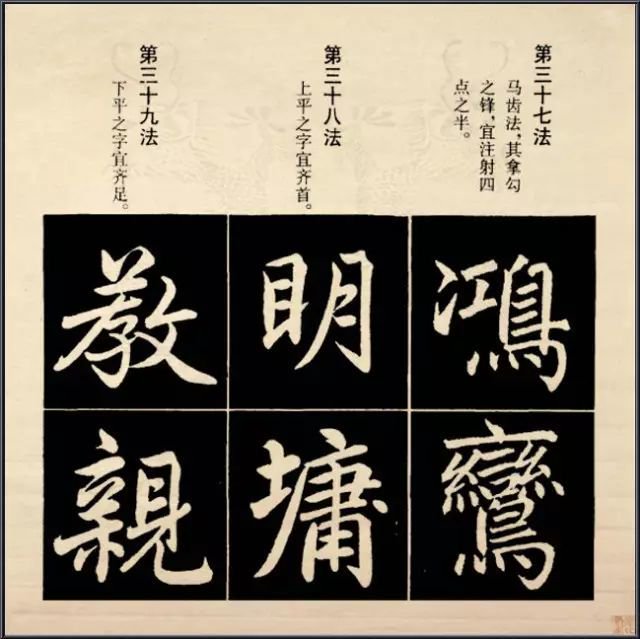 第三十七法
马齿法,其拿勾
之锋,宜注射四
点之半。
鴻
鸞
第三十八法
上平之字宜齐首。
明
墉
第三十九法
下平之字宜齐足。
教
親